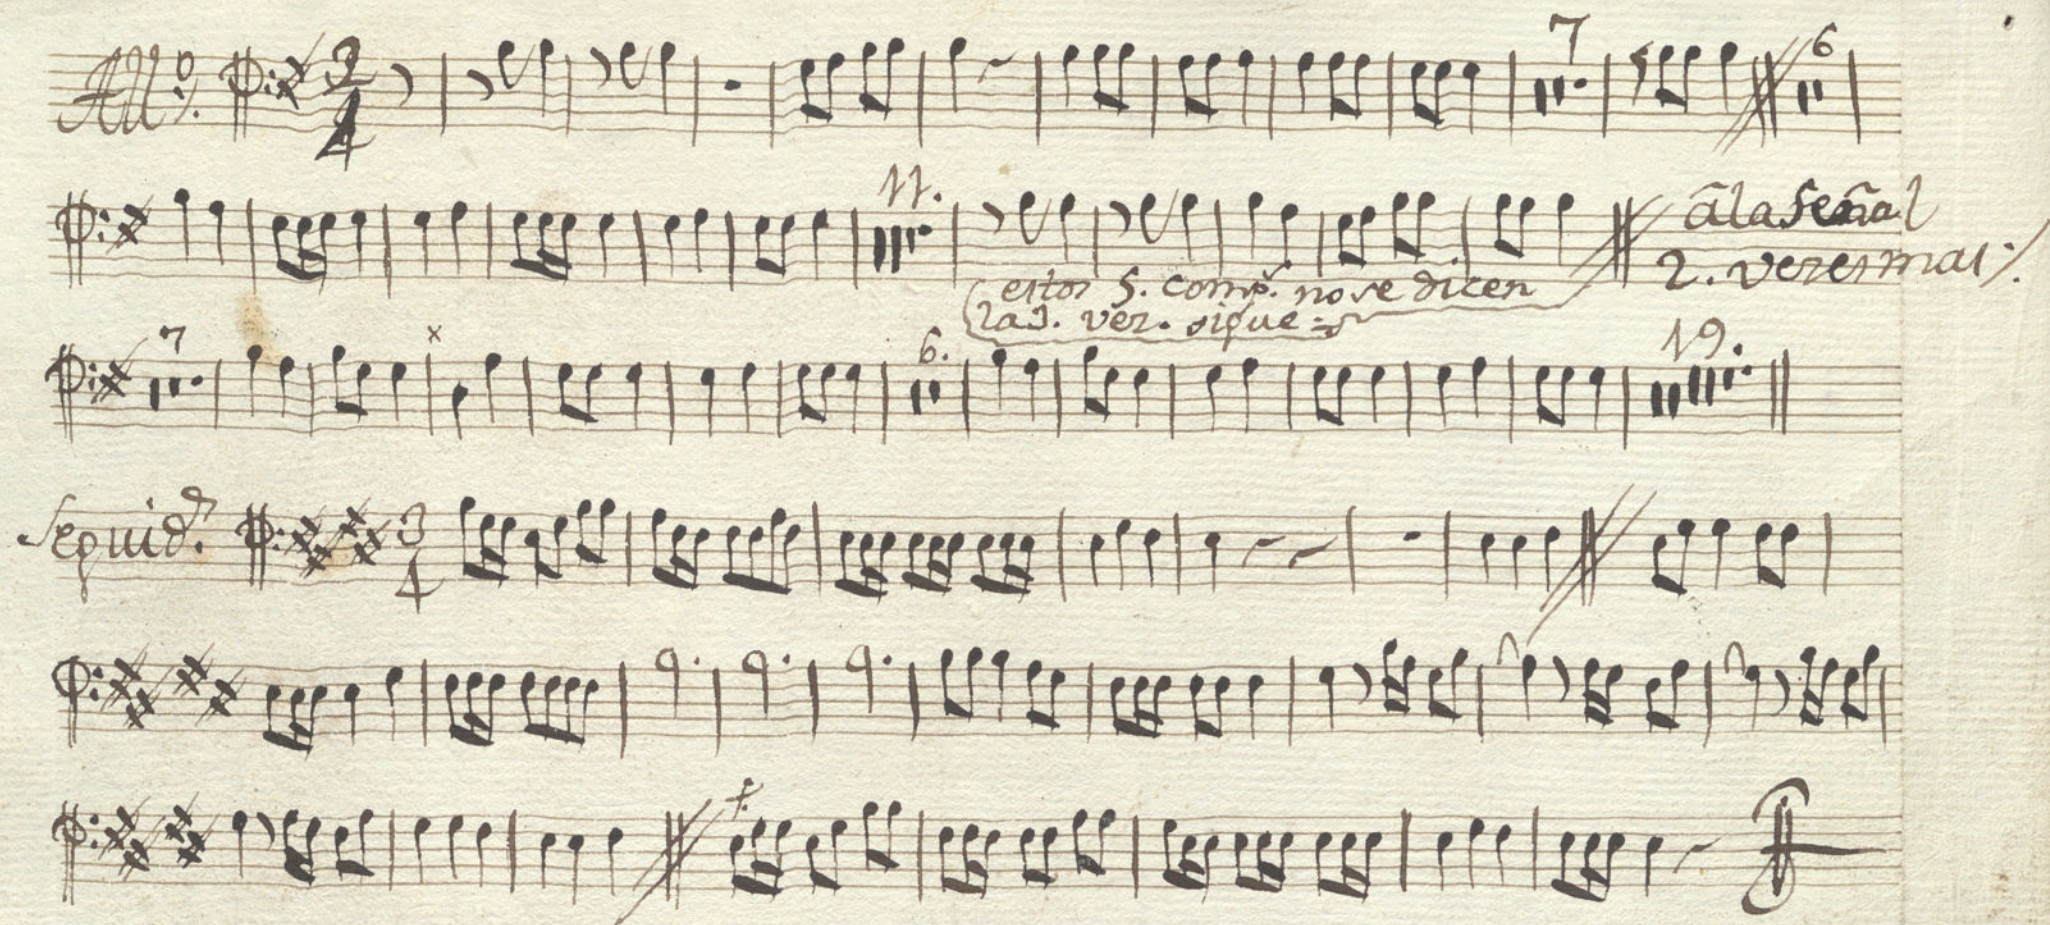 All.º
2
4
7
6
11.
â la señal
2. vezes mas
estos 5. comp.s no se dicen
la 3. vez. sigue
7
6.
19.
Seguid.s
3
4
f.